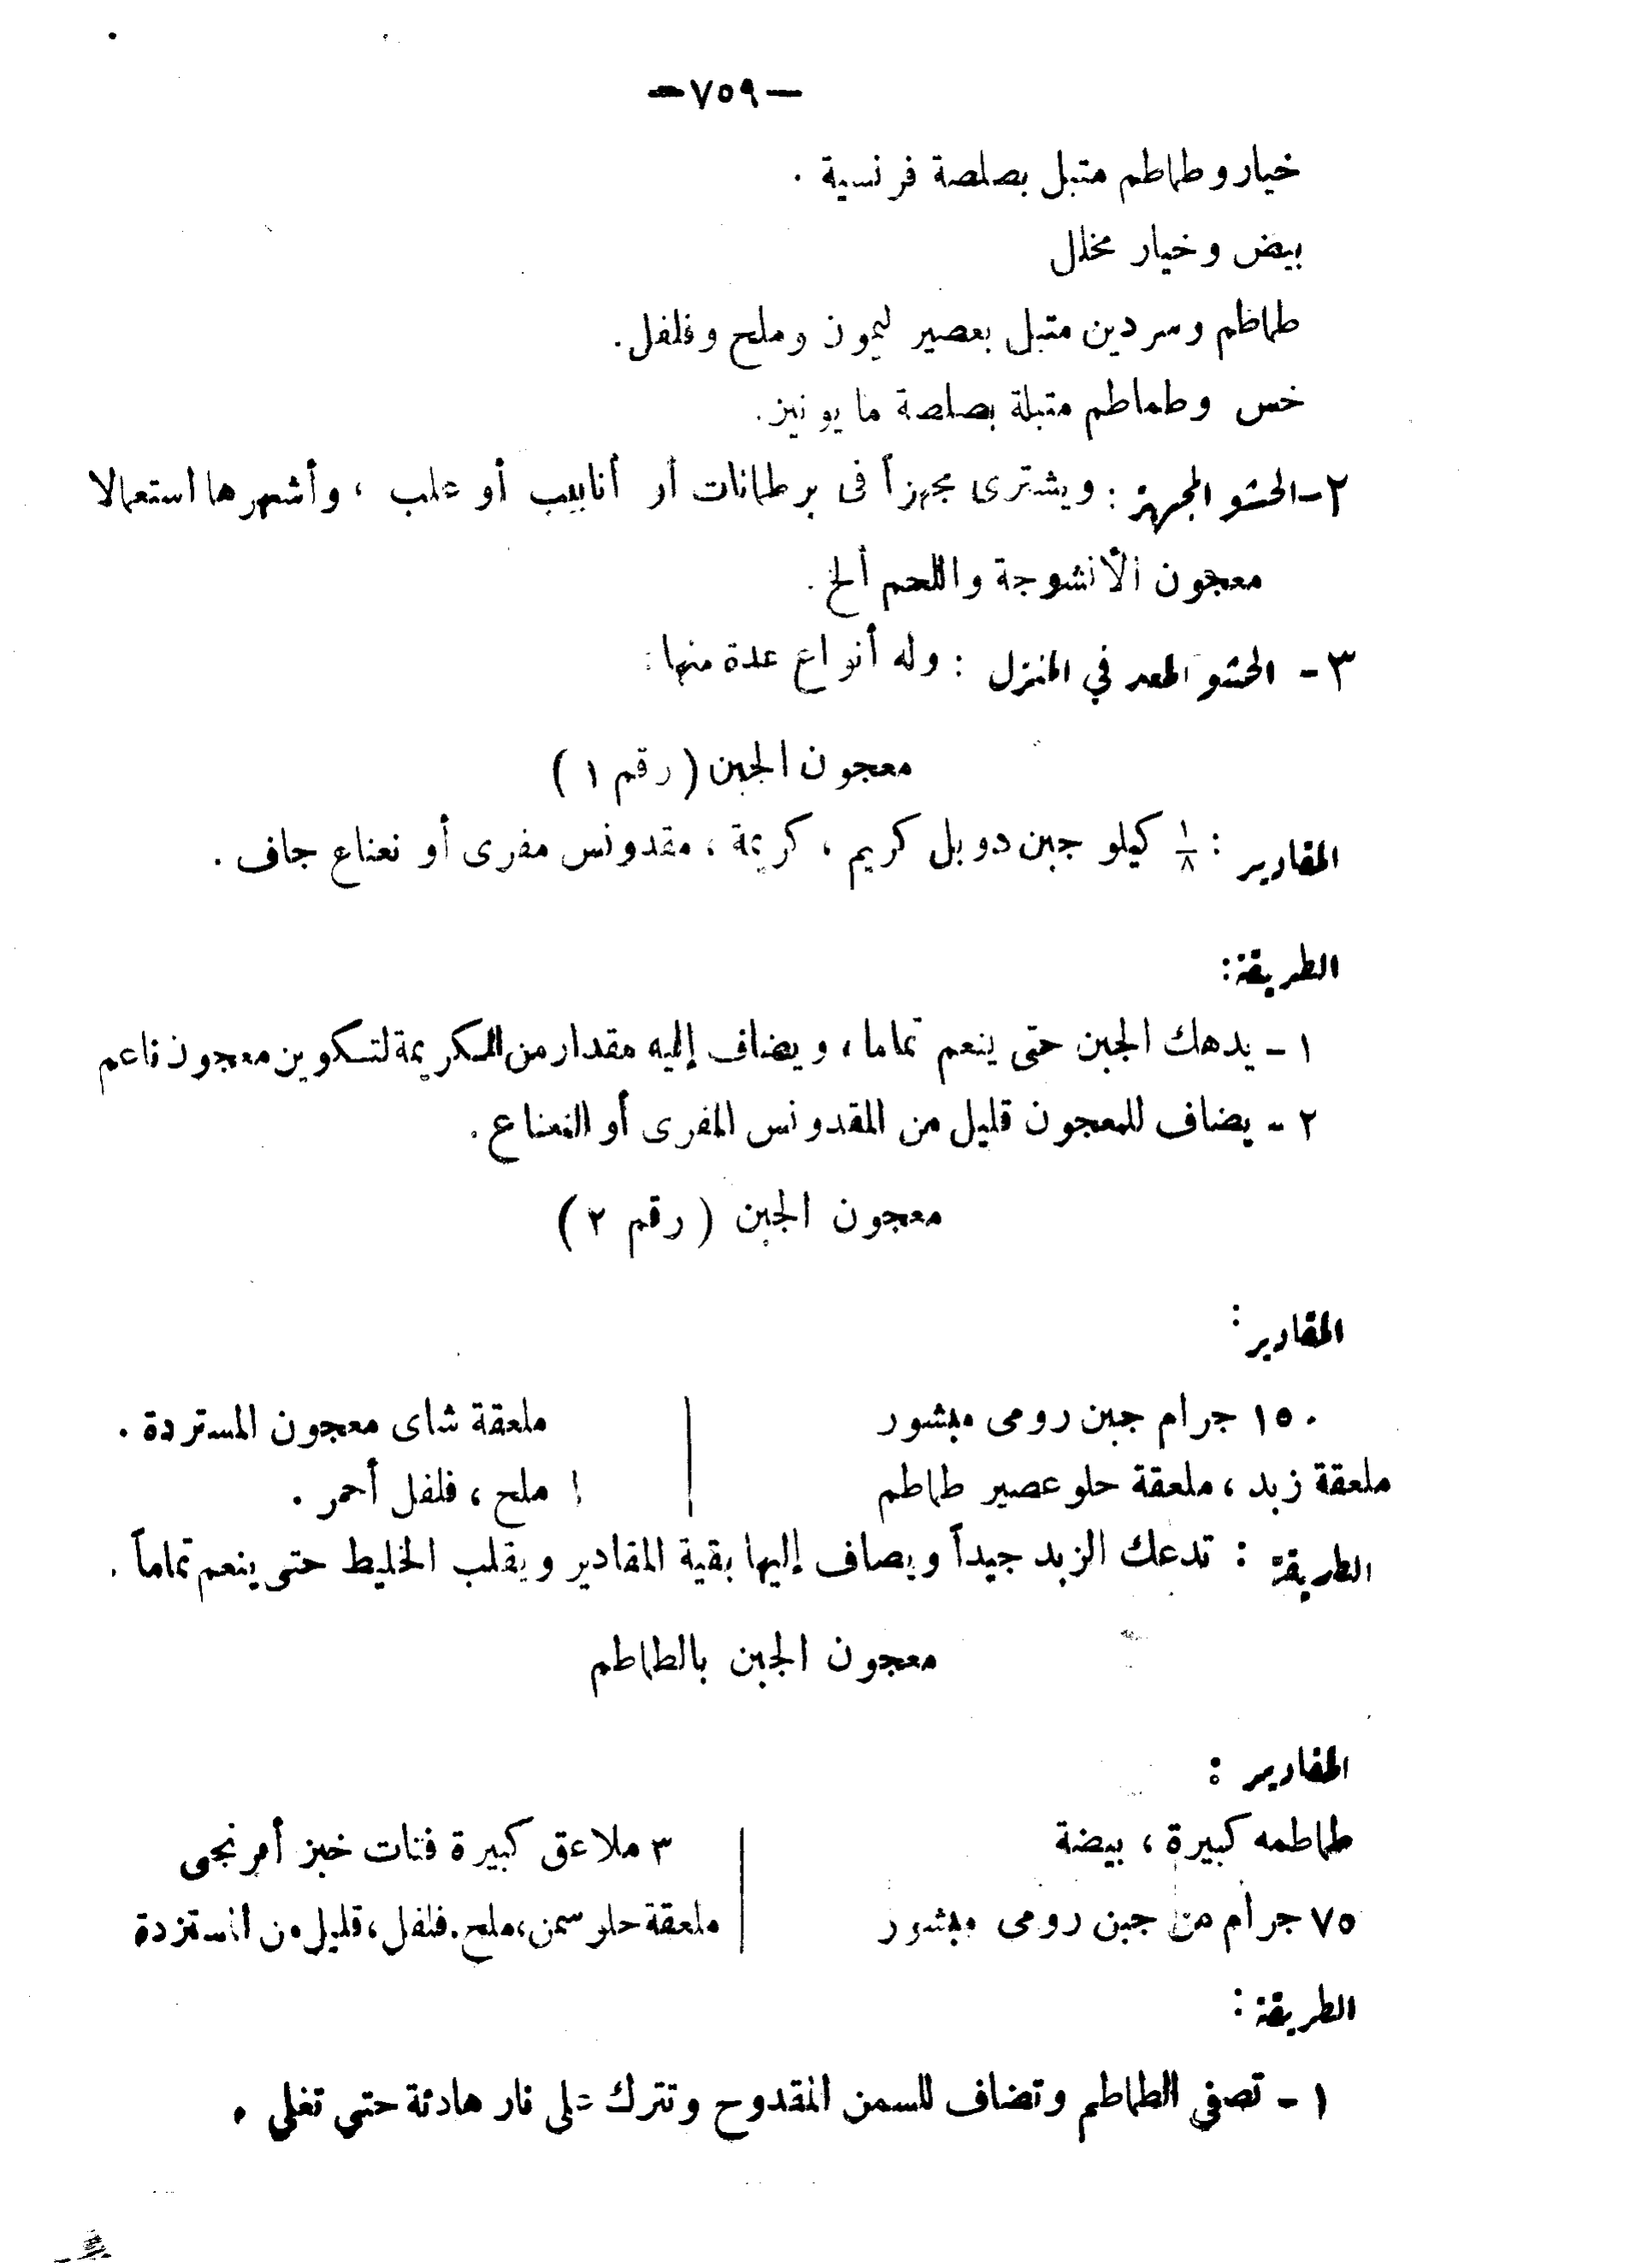 —٧٥٩—
خيار وطماطم متبل بصلصة فرنسية .
بيض وخيار مخلل
طماطم وسردين متبل بعصير ليمون وملح وفلفل.
خس وطماطم متبلة بصلصة مايونيز.
٢-الحشو المجهز : ويشترى مجهزاً فى برطمانات أو أنابيب أو علب ، وأشهرها استعمالا
معجون الأنشوجة واللحم ألخ .
٣- الحشو المعد في المنزل : وله أنواع عدة منها :
معجون الجبن ( رقم ١ )
المقادير : ١/٨ كيلو جبن دوبل كريم ، كريمة ، مقدونس مفرى أو نعناع جاف .
الطريقة :
١ - يدهك الجبن حتى ينعم تماما ، ويضاف إليه مقدار من الكريمة لتكوين معجون ناعم
٢ - يضاف للمعجون قليل من المقدونس المفرى أو النعناع .
معجون الجبن ( رقم ٢ )
المقادير :
١٥٠ جرام جبن رومى مبشور | ملعقة شاى معجون المستردة .
ملعقة زبد ، ملعقة حلو عصير طماطم | ملح ، فلفل أحمر .
الطريقة : تدعك الزبد جيداً ويضاف إليها بقية المقادير ويقلب الخليط حتى ينعم تماماً .
معجون الجبن بالطماطم
المقادير :
طماطمه كبيرة ، بيضة | ٣ ملاعق كبيرة فتات خبز أفرنجى
٧٥ جرام من جبن رومى مبشور | ملعقة حلو سمن ، ملح . فلفل ، قليل من المستردة
الطريقة :
١ - تصفى الطماطم وتضاف للسمن المقدوح وتترك على نار هادئة حتى تغلى .